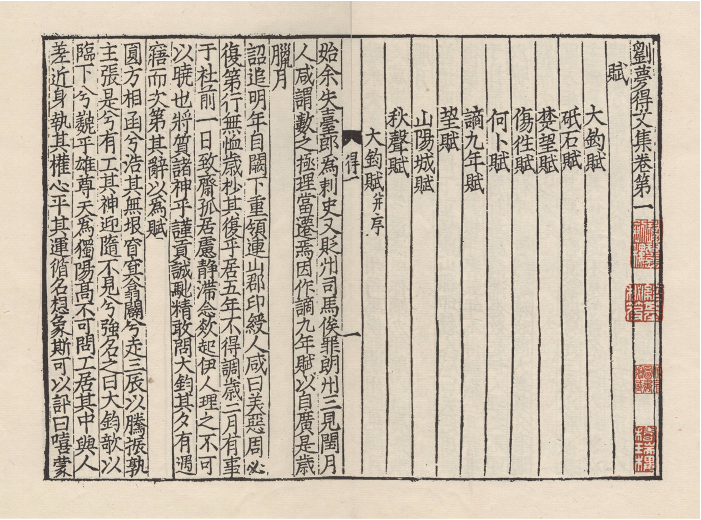 劉夢得文集卷第一
賦
大鈞賦
砥石賦
楚望賦
傷往賦
何卜賦
謫九年賦
望賦
山陽城賦
秋聲賦
大鈞賦并序
得一
一
始余失臺郎為刺史又貶州司馬俟罪朗州三見閏月
人咸謂數之極理當遷焉因作謫九年賦以自廣是歲
臘月
詔追明年自闕下重領連山郡印綬人咸曰美惡周必
復第行無恤歲杪其復乎居五年不得調歲二月有事
于社前一日致齋孤居慮靜滯念欻起伊人理之不可
以曉也將質諸神乎謹貢誠馳精敢問大鈞其夕有遇
寤而次第其辭以為賦
圓方相函兮浩其無垠窅冥翕闢兮走三辰以騰振孰
主張是兮有工其神迎隨不見兮強名之曰大鈞歘以
臨下兮巍乎雄尊天為獨陽高不可問工居其中與人
差近身執其權心平其運循名想象斯可以訴曰嘻蒙